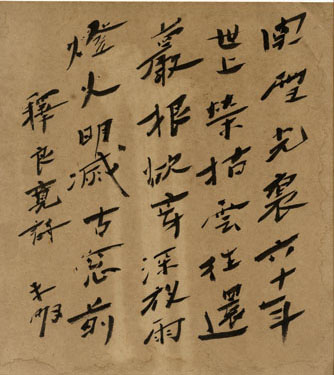 閃電光裏六十年
世上榮枯雲往還
巖根欲穿深夜雨
燈火明滅古窓前
釋良寬詩